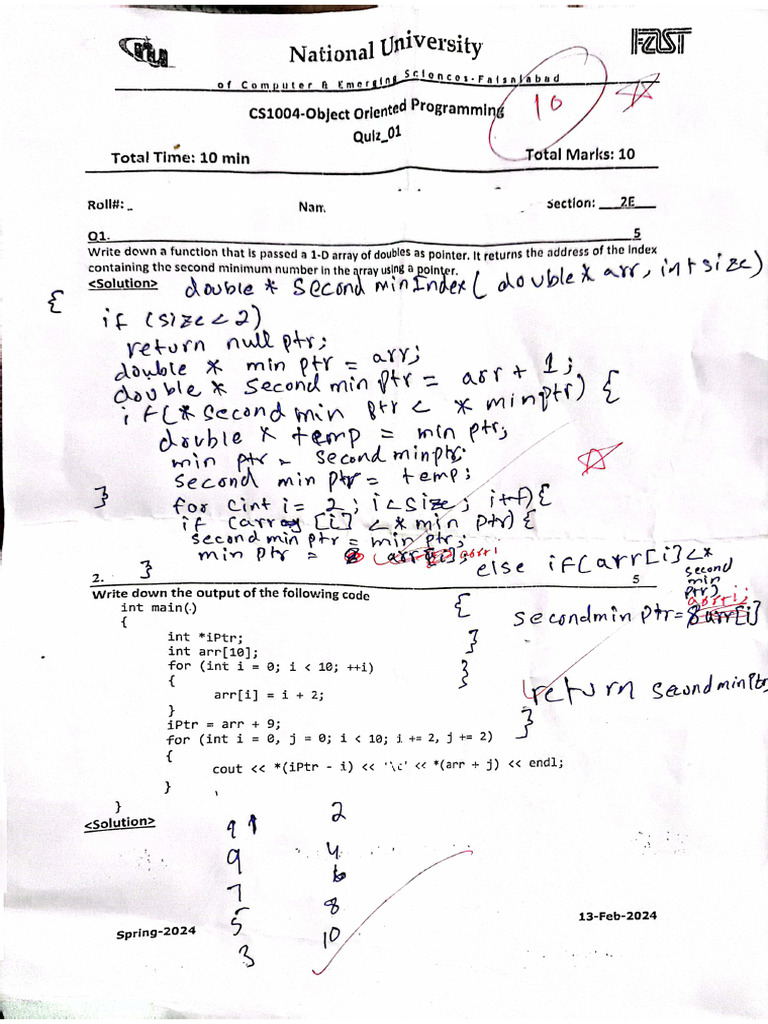 National University
of Computer & Emerging Sciences-Faisalabad
FAST
CS1004-Object Oriented Programming
Quiz_01
10
Total Time: 10 min
Total Marks: 10
Roll#:
Nam
Section: 2E
Q1. 5
Write down a function that is passed a 1-D array of doubles as pointer. It returns the address of the index
containing the second minimum number in the array using a pointer.
<Solution>
double * second minIndex ( double* arr, int size)
{
if (size < 2)
return null ptr;
double * min ptr = arr;
double * second min ptr = arr + 1;
if (* second min ptr < * minptr) {
double * temp = min ptr;
min ptr = second minptr;
second min ptr = temp;
}
for (int i = 2; i < size; i++) {
if (array [i] < * min ptr) {
second min ptr = min ptr;
min ptr = & arr[i]; arr+i
}
else if (arr[i] < *
second
min
ptr)
{
arr+i;
secondmin ptr = & arr[i]
}
}
return secondminptr
}
2. 5
Write down the output of the following code
int main()
{
int *iPtr;
int arr[10];
for (int i = 0; i < 10; ++i)
{
arr[i] = i + 2;
}
iPtr = arr + 9;
for (int i = 0, j = 0; i < 10; i += 2, j += 2)
{
cout << *(iPtr - i) << '\c' << *(arr + j) << endl;
}
}
<Solution>
11 2
9 4
7 6
5 8
3 10
Spring-2024
13-Feb-2024